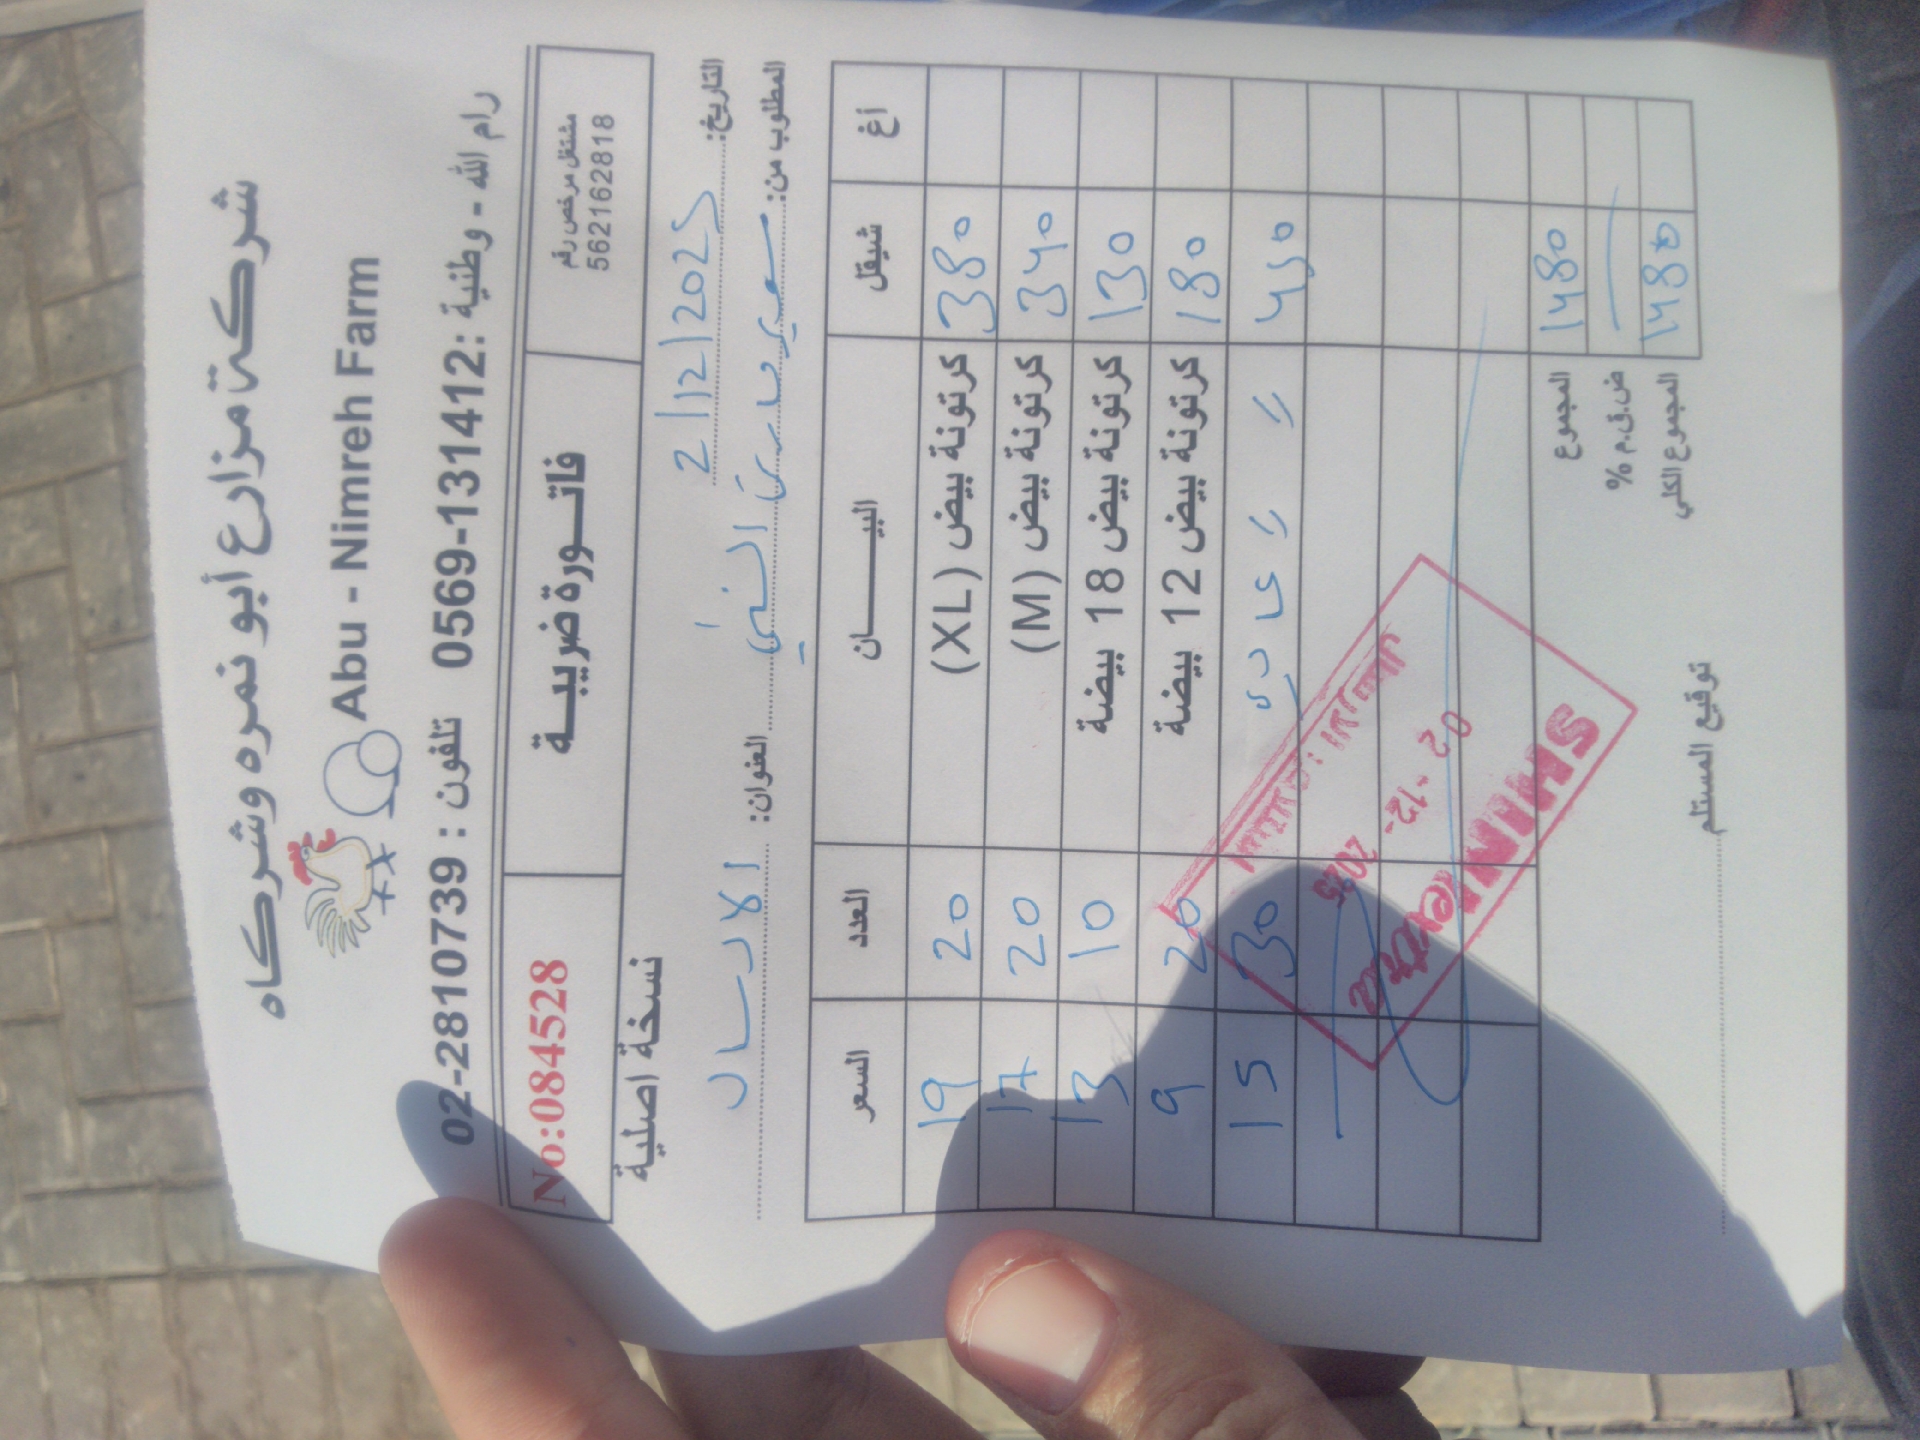 شركة مزارع أبو نمره وشركاه
Abu - Nimreh Farm
رام الله - وطنية : 0569-131412 تلفون : 02-2810739
مشتغل مرخص رقم
562162818
فاتورة ضريبة
No:084528
نسخة اصلية
التاريخ: 2/12/2025
المطلوب من:
العنوان: الارسال
أغ شيقل البيان العدد السعر
380 كرتونة بيض (XL) 20 19
340 كرتونة بيض (M) 20 17
130 كرتونة بيض 18 بيضة 10 13
180 كرتونة بيض 12 بيضة 20 9
450 30 15
SHINI extra
02-12-2025
الارسال
1480 المجموع
ض.ق.م %
1480 المجموع الكلي
توقيع المستلم